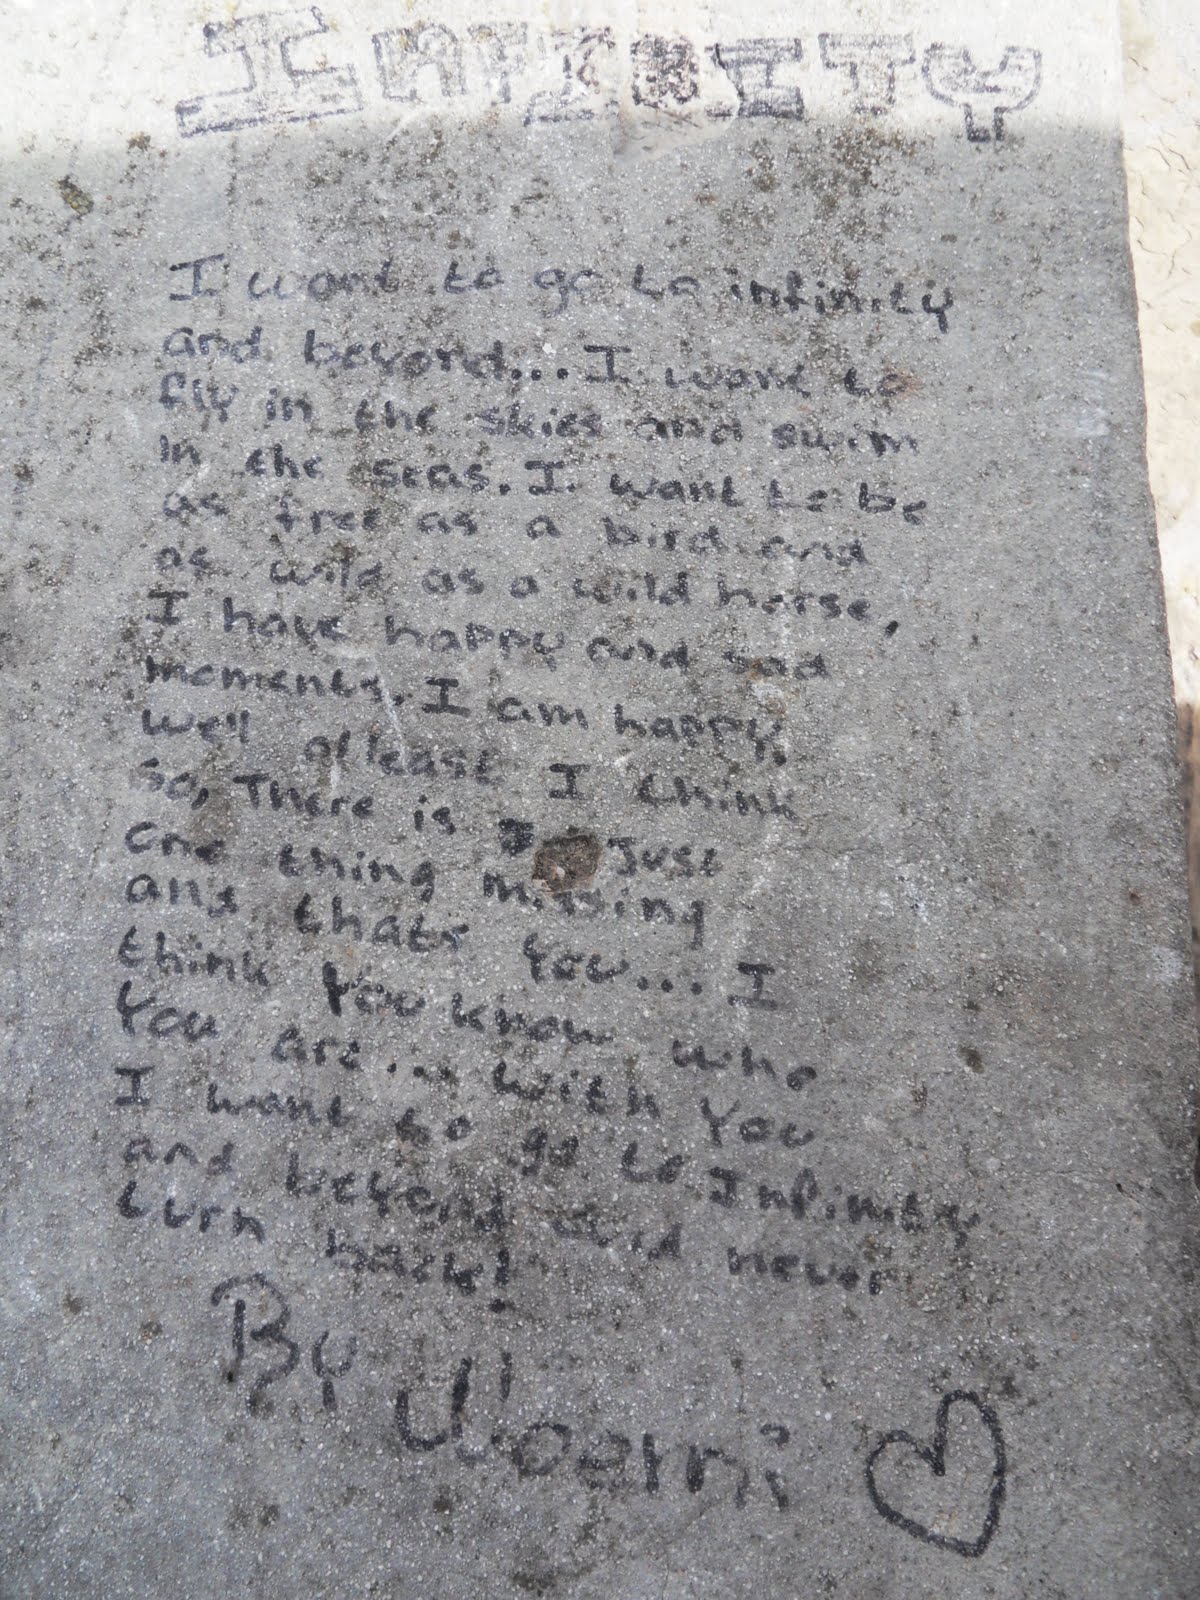 INFINITY
I want to go to infinity
and beyond... I want to
fly in the skies and swim
in the seas. I want to be
as free as a bird and
as wild as a wild horse,
I have happy and sad
moments. I am happy,
well atleast I think
so, There is Just
one thing missing
and thats You... I
think You know who
You are... With You
I want to go to Infinity
and beyond and never
turn back!
By